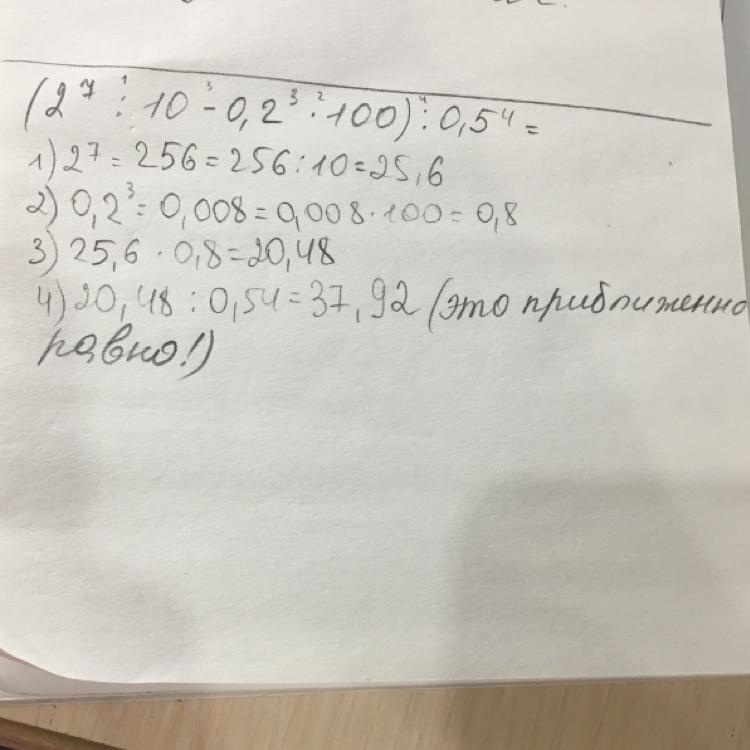 (2⁷ : 10 - 0,2³ · 100) : 0,5⁴ =
1) 2⁷ = 256 = 256 : 10 = 25,6
2) 0,2³ = 0,008 = 0,008 · 100 = 0,8
3) 25,6 · 0,8 = 20,48
4) 20,48 : 0,54 = 37,92 (это приближенно
равно!)